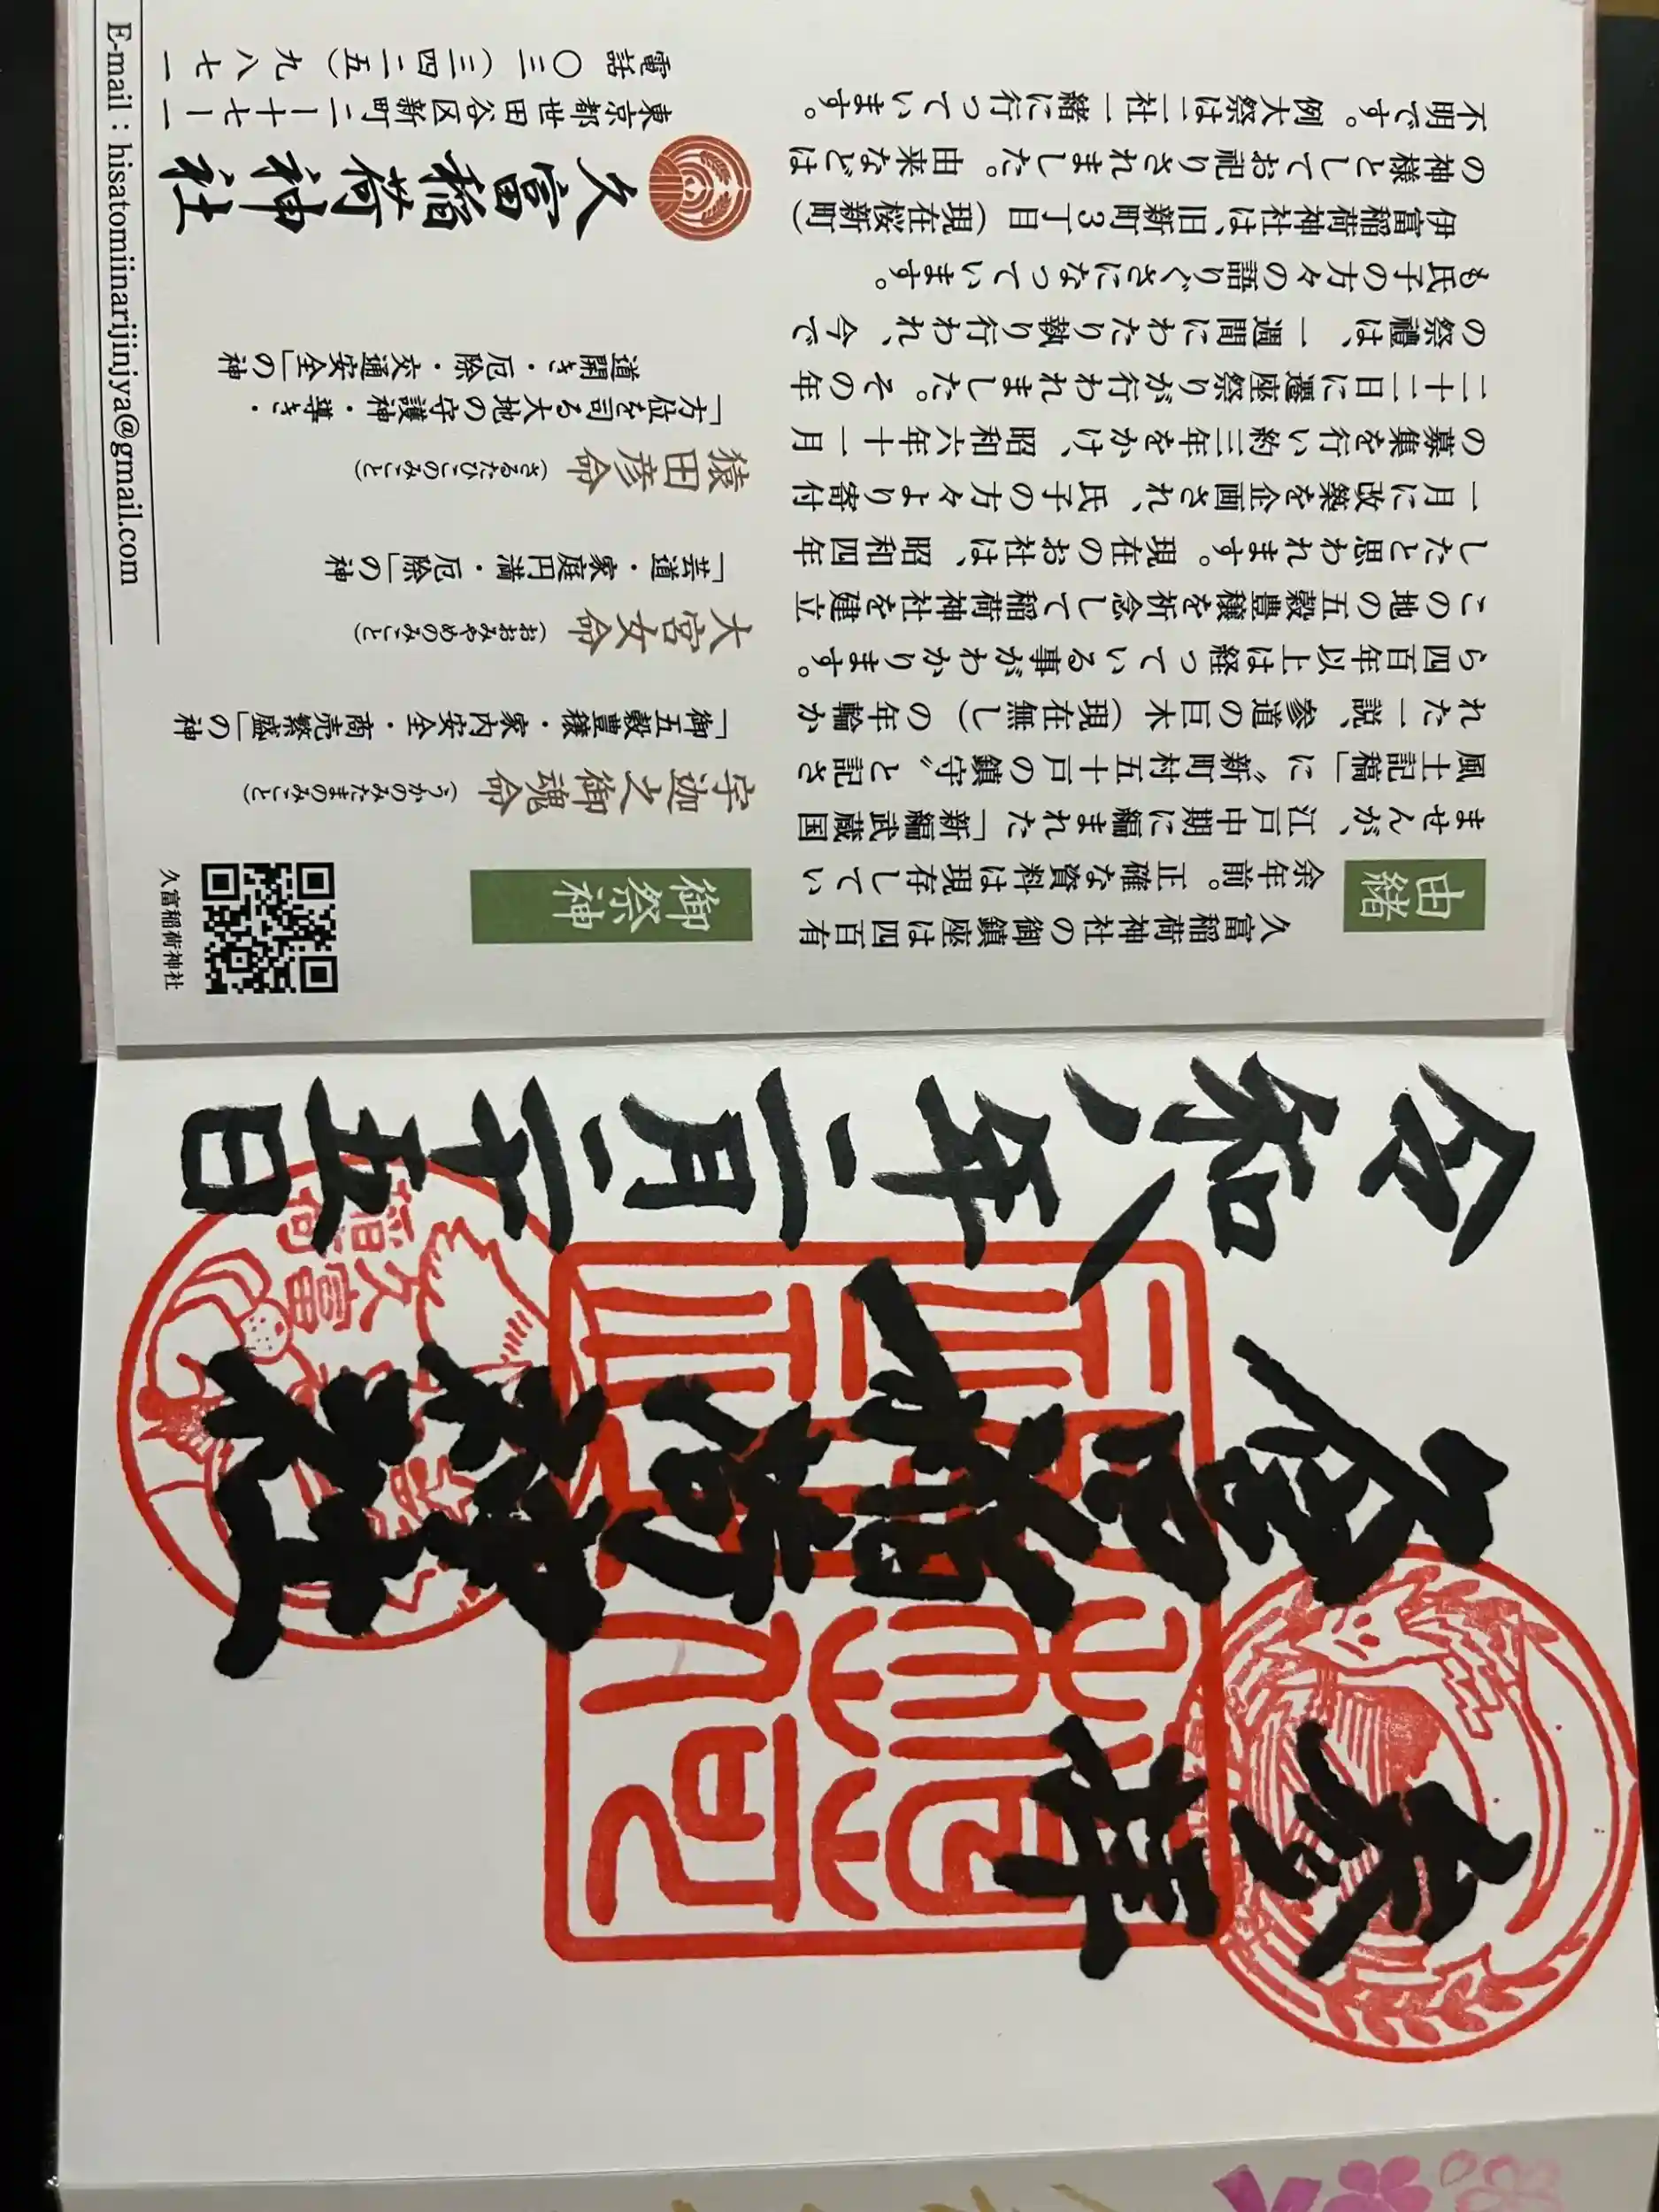 由緒
久富稲荷神社の御鎮座は四百有
余年前。正確な資料は現存してい
ませんが、江戸中期に編まれた「新編武蔵国
風土記稿」に〝新町村五十戸の鎮守〟と記さ
れた一説、参道の巨木(現在無し)の年輪か
ら四百年以上は経っている事がわかります。
この地の五穀豊穣を祈念して稲荷神社を建立
したと思われます。現在のお社は、昭和四年
一月に改築を企画され、氏子の方々より寄付
の募集を行い約三年をかけ、昭和六年十一月
二十二日に遷座祭りが行われました。その年
の祭禮は、一週間にわたり執り行われ、今で
も氏子の方々の語りぐさになっています。
伊富稲荷神社は、旧新町3丁目(現在桜新町)
の神様としてお祀りされました。由来などは
不明です。例大祭は二社一緒に行っています。
御祭神
宇迦之御魂命(うかのみたまのみこと)
「御五穀豊穣・家内安全・商売繁盛」の神
大宮女命(おおみやめのみこと)
「芸道・家庭円満・厄除」の神
猿田彦命(さるたひこのみこと)
「方位を司る大地の守護神・導き・
道開き・厄除・交通安全」の神
久富稲荷神社
久富稲荷神社
東京都世田谷区新町二ー十七ー一
電話 〇三(三四二五)九八七一
E-mail : hisatomiinarijinjya@gmail.com
奉拝
久富稲荷神社
令和八年二月二十五日
久富
稲荷